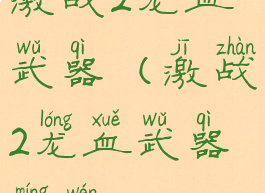 激战2龙血
wǔ qì jī zhàn
武器(激战
lóng xuě wǔ qì
2龙血武器
míng wén